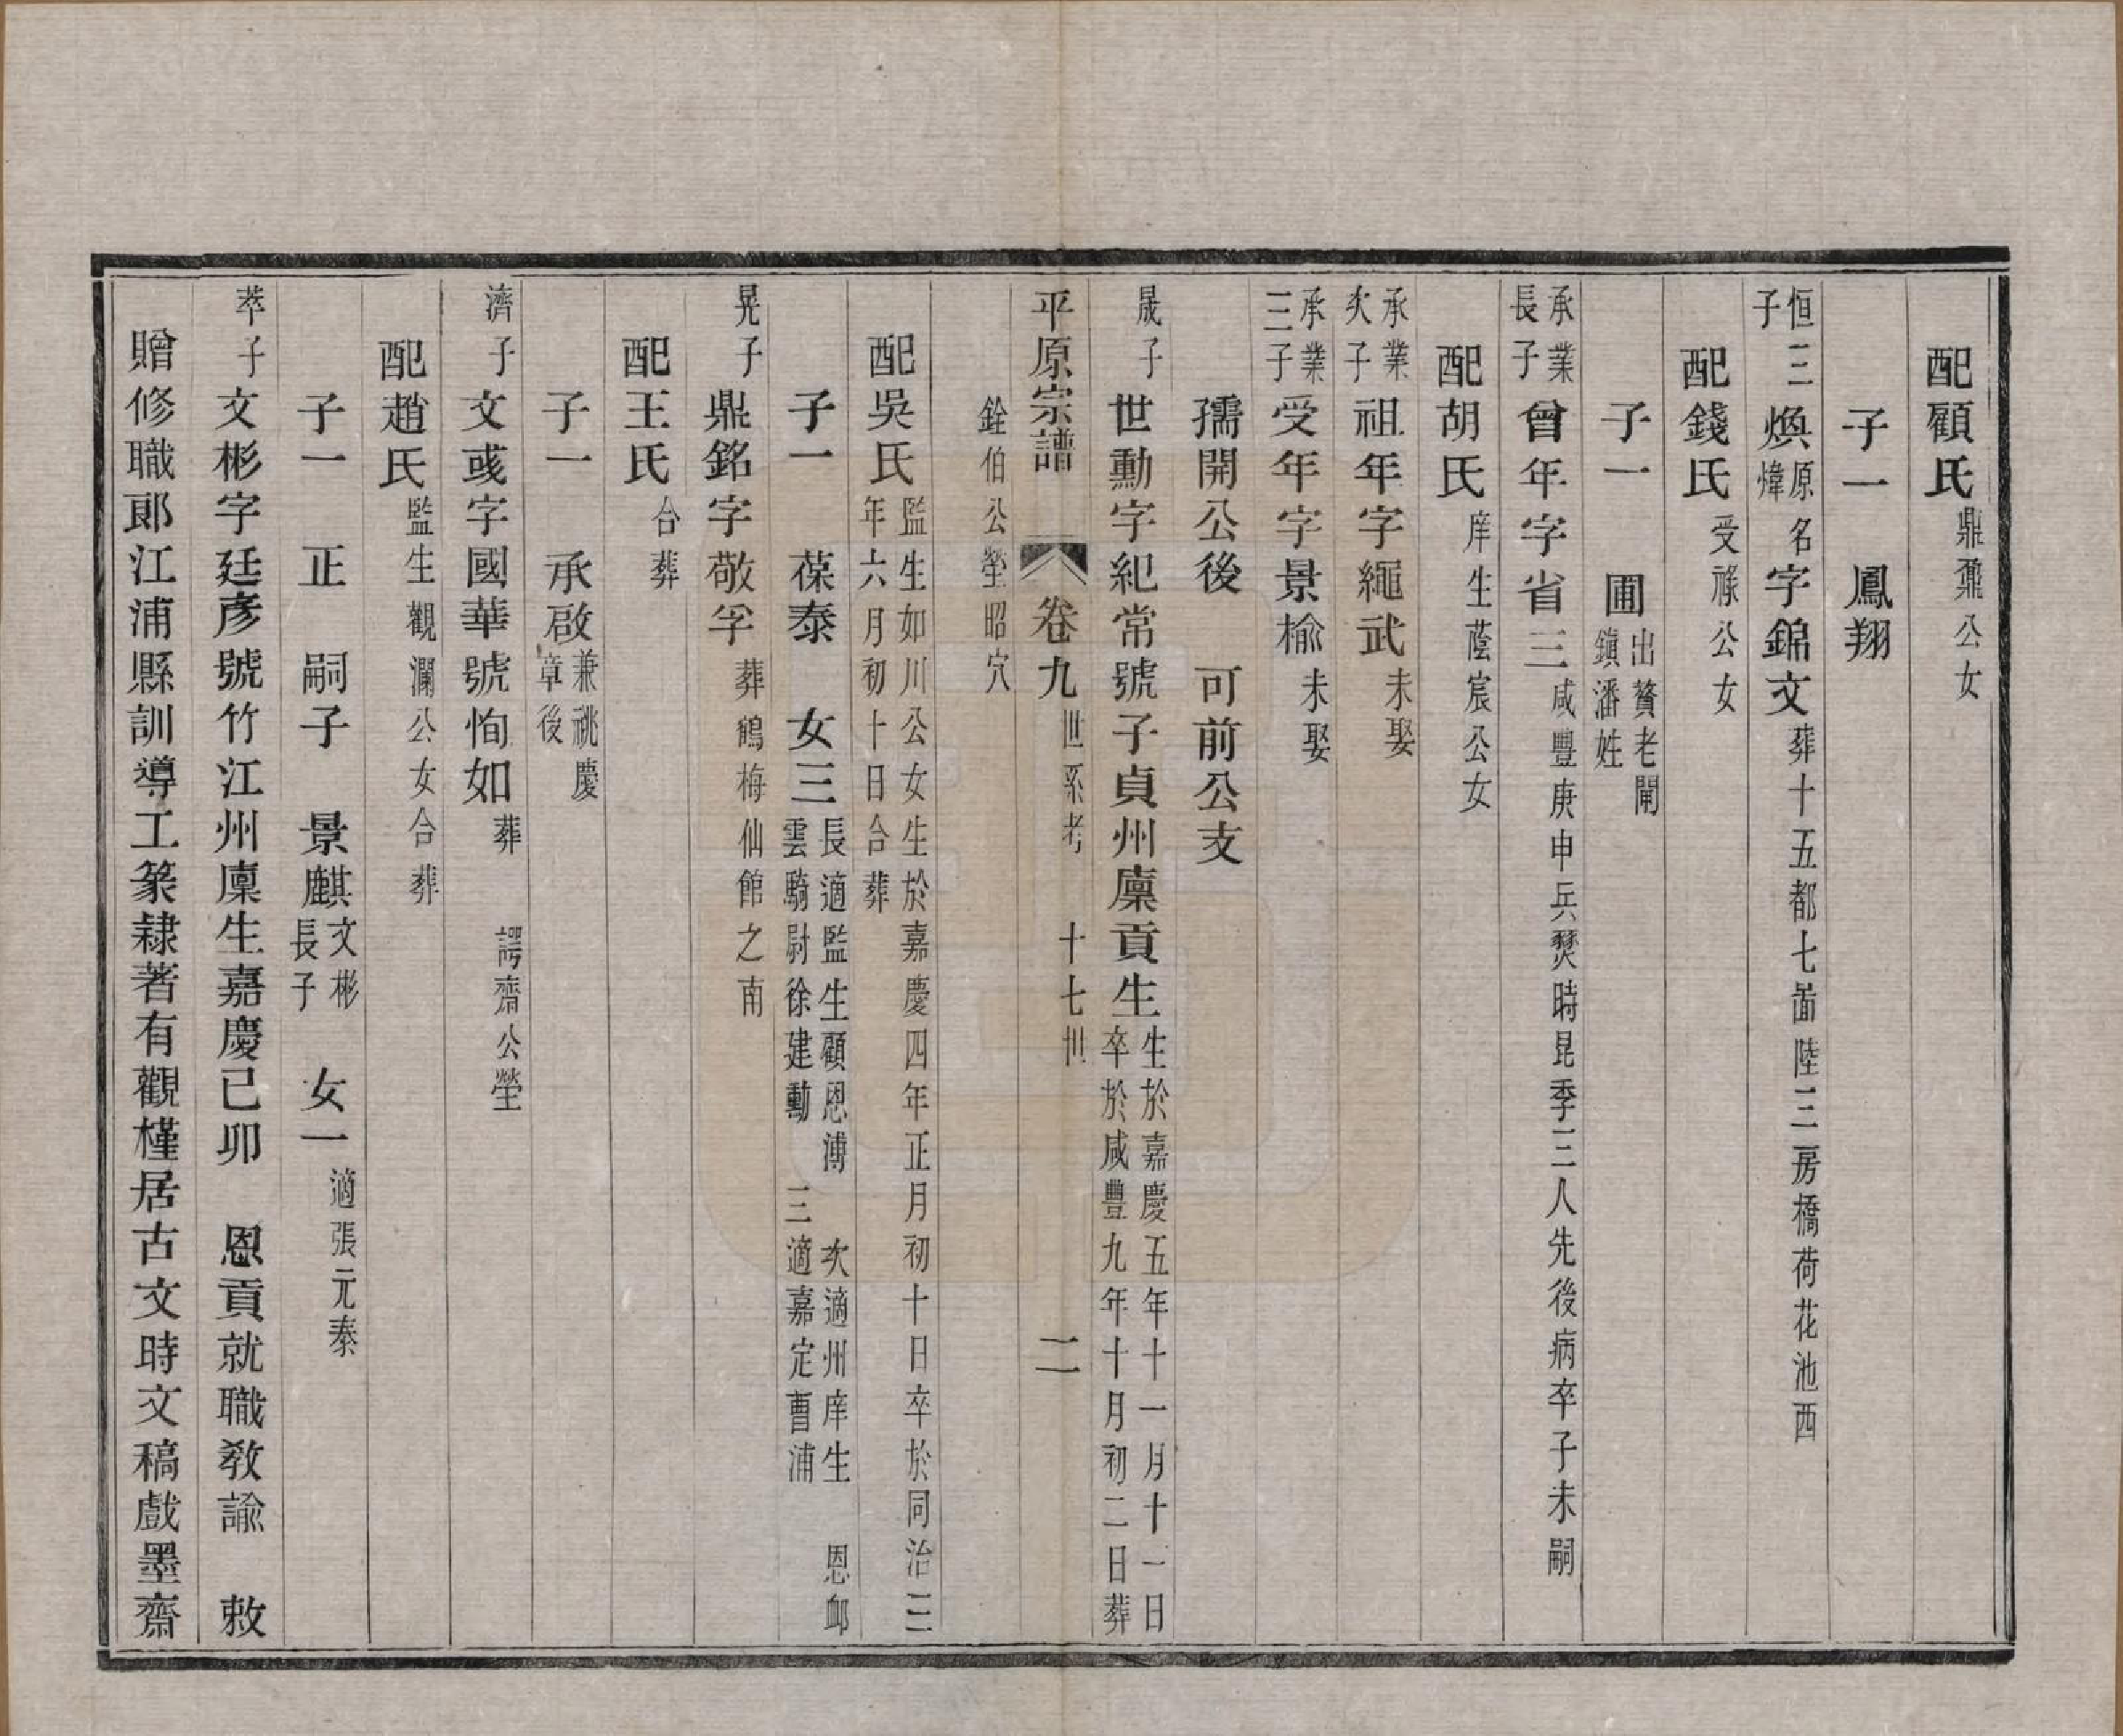 配顧氏鼎鼐公女
子一　鳳翔
恒三子煥原名煒字錦文葬十五都七啚陸三房橋荷花池西
配錢氏受祿公女
子一　圃出贅老閘鎮潘姓
承業長子曾年字省三咸豐庚申兵燹時昆季三人先後病卒子未嗣
配胡氏庠生蔭宸公女
承業次子祖年字繩武未娶
承業三子受年字景榆未娶
孺開公後　可前公支
晟子世勳字紀常號子貞州廩貢生生於嘉慶五年十一月十一日卒於咸豐九年十月初二日葬
平原宗譜　卷九世系考　十七世　二
銓伯公塋昭穴
配吳氏監生如川公女生於嘉慶四年正月初十日卒於同治三年六月初十日合葬
子一　葆泰　女三長適監生顧恩溥　次適州庠生　恩卹雲騎尉徐建勳　三適嘉定曹浦
晃子鼎銘字敬孚葬鶴梅仙館之南
配王氏合葬
子一　承啟兼祧慶章後
濟子文彧字國華號恂如葬　諤齋公塋
配趙氏監生觀瀾公女合葬
子一　正　嗣子　景麒文彬長子　女一適張元泰
萃子文彬字廷彥號竹江州廩生嘉慶己卯　恩貢就職教諭　敕
贈修職郎江浦縣訓導工篆隸著有觀槿居古文時文稿戲墨齋